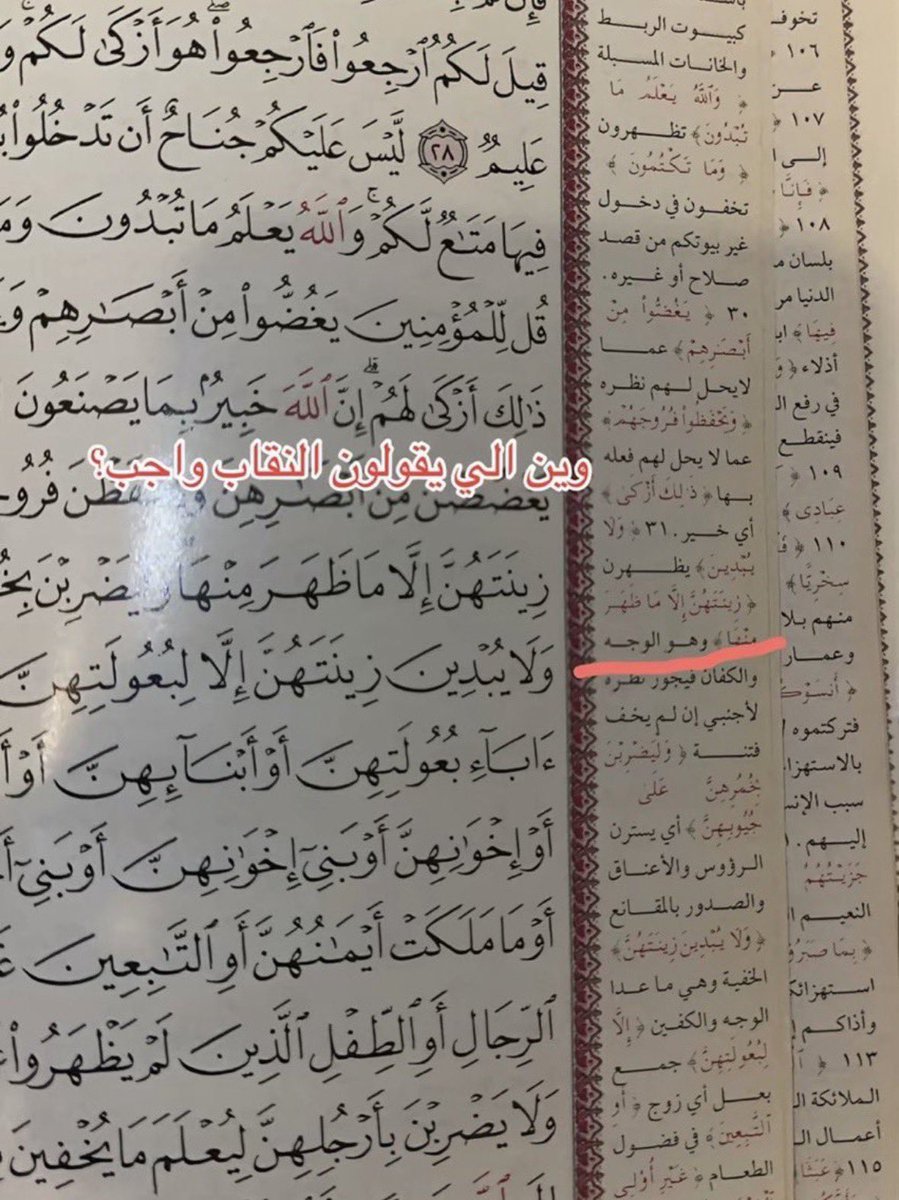 قِيلَ لَكُمُ ٱرْجِعُوا۟ فَٱرْجِعُوا۟ هُوَ أَزْكَىٰ لَكُمْ
عَلِيمٌ ٢٨ لَّيْسَ عَلَيْكُمْ جُنَاحٌ أَن تَدْخُلُوا۟
فِيهَا مَتَٰعٌ لَّكُمْ ۚ وَٱللَّهُ يَعْلَمُ مَا تُبْدُونَ
قُل لِّلْمُؤْمِنِينَ يَغُضُّوا۟ مِنْ أَبْصَٰرِهِمْ
ذَٰلِكَ أَزْكَىٰ لَهُمْ ۗ إِنَّ ٱللَّهَ خَبِيرٌۢ بِمَا يَصْنَعُونَ
وين الي يقولون النقاب واجب؟
يَغْضُضْنَ مِنْ أَبْصَٰرِهِنَّ وَيَحْفَظْنَ
زِينَتَهُنَّ إِلَّا مَا ظَهَرَ مِنْهَا ۖ وَلْيَضْرِبْنَ
وَلَا يُبْدِينَ زِينَتَهُنَّ إِلَّا لِبُعُولَتِهِنَّ
ءَابَآءِ بُعُولَتِهِنَّ أَوْ أَبْنَآئِهِنَّ
أَوْ إِخْوَٰنِهِنَّ أَوْ بَنِىٓ إِخْوَٰنِهِنَّ أَوْ بَنِىٓ
أَوْ مَا مَلَكَتْ أَيْمَٰنُهُنَّ أَوِ ٱلتَّٰبِعِينَ
ٱلرِّجَالِ أَوِ ٱلطِّفْلِ ٱلَّذِينَ لَمْ يَظْهَرُوا۟
وَلَا يَضْرِبْنَ بِأَرْجُلِهِنَّ لِيُعْلَمَ مَا يُخْفِينَ
كبيوت الربط
والخانات المسبلة
﴿ وَٱللَّهُ يَعْلَمُ مَا
تُبْدُونَ ﴾ تظهرون
﴿ وَمَا تَكْتُمُونَ ﴾
تخفون في دخول
غير بيوتكم من قصد
صلاح أو غيره.
٣٠ ﴿ يَغُضُّوا۟ مِنْ
أَبْصَٰرِهِمْ ﴾ عما
لا يحل لهم نظره
﴿ وَيَحْفَظُوا۟ فُرُوجَهُمْ ﴾
عما لا يحل لهم فعله
بها ﴿ ذَٰلِكَ أَزْكَىٰ ﴾
أي خير. ٣١ ﴿ وَلَا
يُبْدِينَ ﴾ يظهرن
﴿ زِينَتَهُنَّ إِلَّا مَا ظَهَرَ
مِنْهَا ﴾ وهو الوجه
والكفان فيجوز نظره
لأجنبي إن لم يخف
فتنة ﴿ وَلْيَضْرِبْنَ
بِخُمُرِهِنَّ عَلَىٰ
جُيُوبِهِنَّ ﴾ أي يسترن
الرؤوس والأعناق
والصدور بالمقانع
﴿ وَلَا يُبْدِينَ زِينَتَهُنَّ ﴾
الخفية وهي ما عدا
الوجه والكفين ﴿ إِلَّا
لِبُعُولَتِهِنَّ ﴾ جمع
بعل أي زوج ﴿ أَوِ
ٱلتَّٰبِعِينَ ﴾ في فضول
الطعام ﴿ غَيْرِ أُو۟لِى
تخوف
١٠٦
عن
١٠٧ ﴿
إلى
﴿ فَإِنَّا
١٠٨ ﴿
بلسان
الدنيا
فِيهَا ﴾
أذلاء ﴿
في رفع
فينقطع
١٠٩ ﴿
عِبَادِى ﴾
١١٠ ﴿
سِخْرِيًّا ﴾
منهم
فتركتموه
بالاستهزاء
سبب
إليهم.
جَزَيْتُهُمُ
النعيم
﴿ بِمَا صَبَرُوٓا۟
وأذاكم
١١٣ ﴿
الملائكة
أعمال
١١٥ ﴿ عَبَثًا